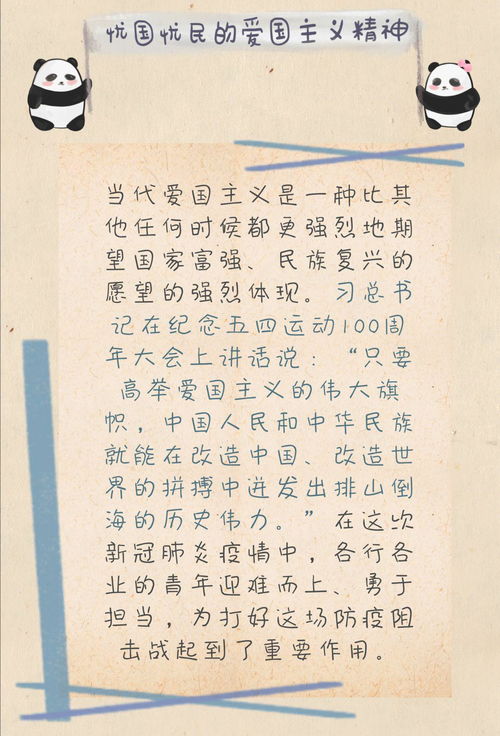 忧国忧民的爱国主义精神
当代爱国主义是一种比其
他任何时侯都更强烈地期
望国家富强、民族复兴的
愿望的强烈体现。习总书
记在纪念五四运动100周
年大会上讲话说：“只要
高举爱国主义的伟大旗
帜，中国人民和中华民族
就能在改造中国、改造世
界的拼搏中迸发出排山倒
海的历史伟力。”在这次
新冠肺炎疫情中，各行各
业的青年迎难而上、勇于
担当，为打好这场防疫阻
击战起到了重要作用。